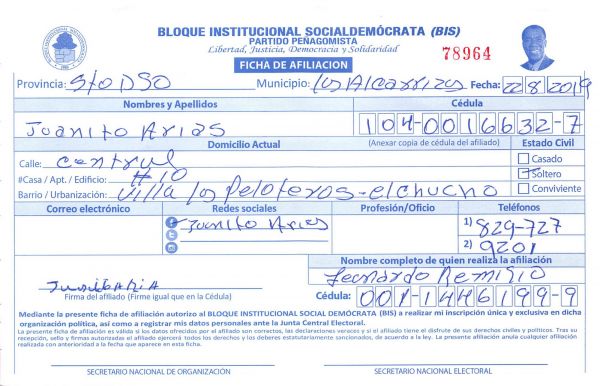 BLOQUE INSTITUCIONAL SOCIALDEMÓCRATA (BIS)
PARTIDO PEÑAGOMISTA
Libertad, Justicia, Democracia y Solidaridad
78964
FICHA DE AFILIACION
Provincia: Sto DGO Municipio: Los Alcarrizos Fecha: 22 8 2019
Nombres y Apellidos Cédula
Juanito Arias 104-0016632-7
(Anexar copia de cédula del afiliado)
Domicilio Actual Estado Civil
Calle: Central Casado
#Casa / Apt. / Edificio: #10 Soltero
Barrio / Urbanización: Villa los Peloteros-el chucho Conviviente
Correo electrónico Redes sociales Profesión/Oficio Teléfonos
Juanito Arias 1) 829-727
2) 9201
Nombre completo de quien realiza la afiliación
Leonardo Remigio
Firma del afiliado (Firme igual que en la Cédula) Cédula: 001-1446199-9
Mediante la presente ficha de afiliación autorizo al BLOQUE INSTITUCIONAL SOCIAL DEMÓCRATA (BIS) a realizar mi inscripción única y exclusiva en dicha
organización política, así como a registrar mis datos personales ante la Junta Central Electoral.
La presente ficha de afiliación es válida si los datos ofrecidos por el afiliado son correctos, las declaraciones veraces y si el afiliado tiene el disfrute de sus derechos civiles y políticos. Tras su
recepción, sello y firmas autorizadas el afiliado ejercerá todos los derechos y los deberes estatutariamente sancionados, de acuerdo a la ley. La presente afiliación anula cualquier afiliación
realizada con anterioridad a la fecha que aparece en esta ficha.
SECRETARIO NACIONAL DE ORGANIZACIÓN SECRETARIO NACIONAL ELECTORAL